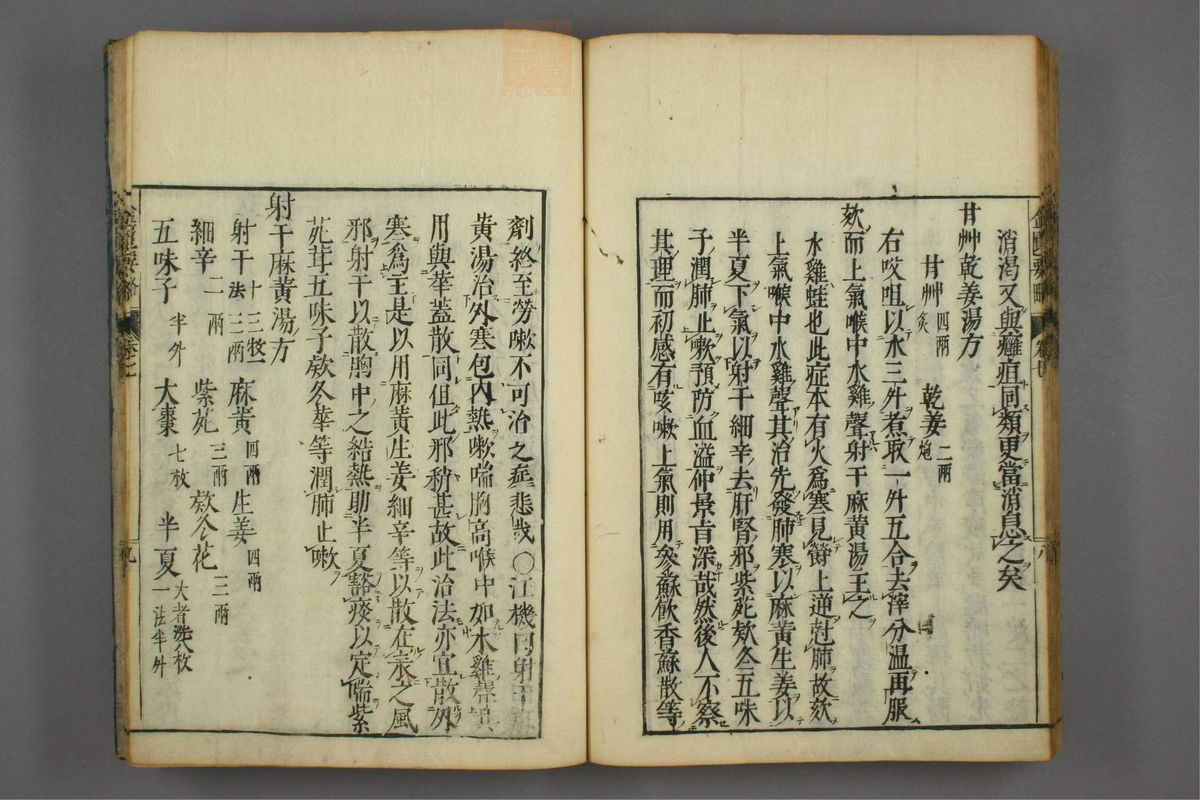 消渴又與癰疽同類更當消息之矣
甘艸乾姜湯方
甘艸四兩炙 乾姜二兩炮
右㕮咀以水三升煮取一升五合去滓分温再服
欬而上氣喉中水雞聲射干麻黄湯主之
水雞蛙也此症本有火爲寒見欝上逆尅肺故欬
上氣喉中水雞聲其治先發肺寒以麻黄生姜以
半夏下氣以射干細辛去肝腎邪紫菀欸冬五味
子潤肺止嗽預防血溢仲景旨深哉然後人不察
其理而初感有咳嗽上氣則用參蘇飲香蘇散等
劑終至勞嗽不可治之症悲哉○江機曰射干麻
黄湯治外寒包内熱嗽喘胸高喉中如水雞聲
用與華蓋散同但此邪稍甚故此治法亦宜散外
寒爲主是以用麻黄生姜細辛等以散在表之風
邪射干以散胸中之結熱助半夏豁痰以定喘紫
菀茸五味子欸冬華等潤肺止嗽
射干麻黄湯方
射干十三枚一法三兩 麻黄四兩 生姜四兩
細辛三兩 紫菀三兩 欸冬花三兩
五味子半升 大棗七枚 半夏大者洗八枚一法半升